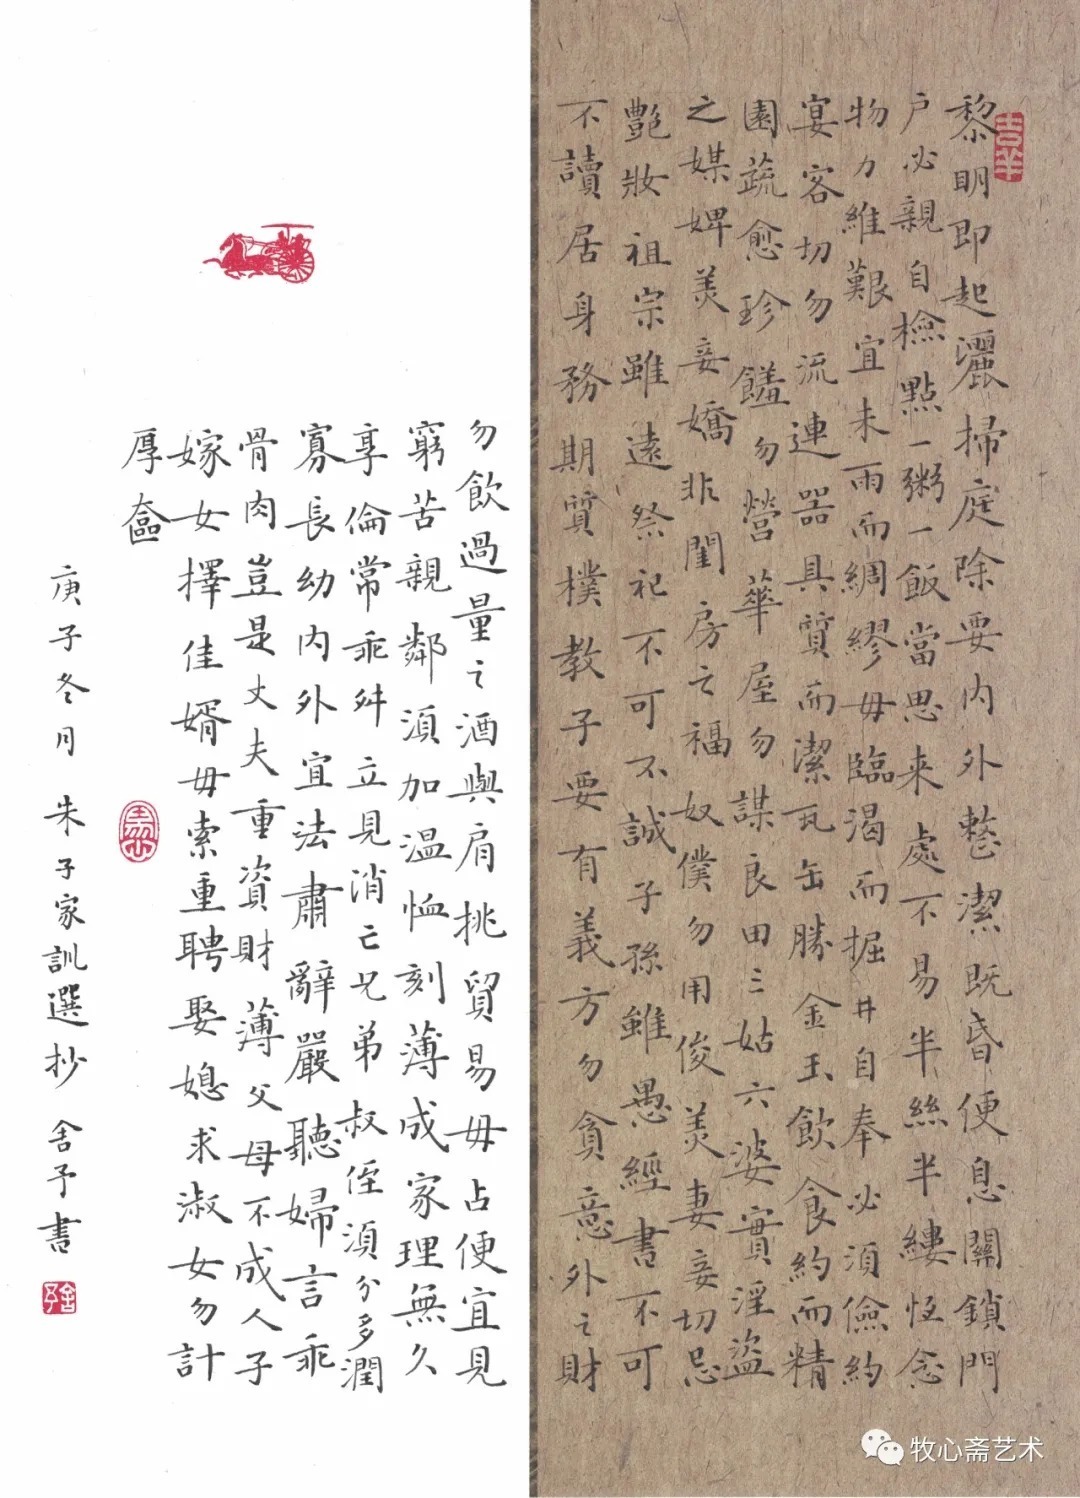 黎明即起灑掃庭除要内外整潔既昏便息關鎖門
户必親自檢點一粥一飯當思来處不易半絲半縷恆念
物力維艱宜未雨而綢繆毋臨渴而掘井自奉必須儉約
宴客切勿流連器具質而潔瓦缶勝金玉飲食約而精
園蔬愈珍饈勿營華屋勿謀良田三姑六婆實淫盜
之媒婢美妾嬌非閨房之福奴僕勿用俊美妻妾切忌
艷妝祖宗雖遠祭祀不可不誠子孫雖愚經書不可
不讀居身務期質樸教子要有義方勿貪意外之財
勿飲過量之酒與肩挑貿易毋占便宜見
窮苦親鄰須加温恤刻薄成家理無久
享倫常乖舛立見消亡兄弟叔侄須分多潤
寡長幼内外宜法肅辭嚴聽婦言乖
骨肉豈是丈夫重資財薄父母不成人子
嫁女擇佳婿毋索重聘娶媳求淑女勿計
厚奩
庚子冬月 朱子家訓選抄 舍予書
吉羊
牧心斋艺术